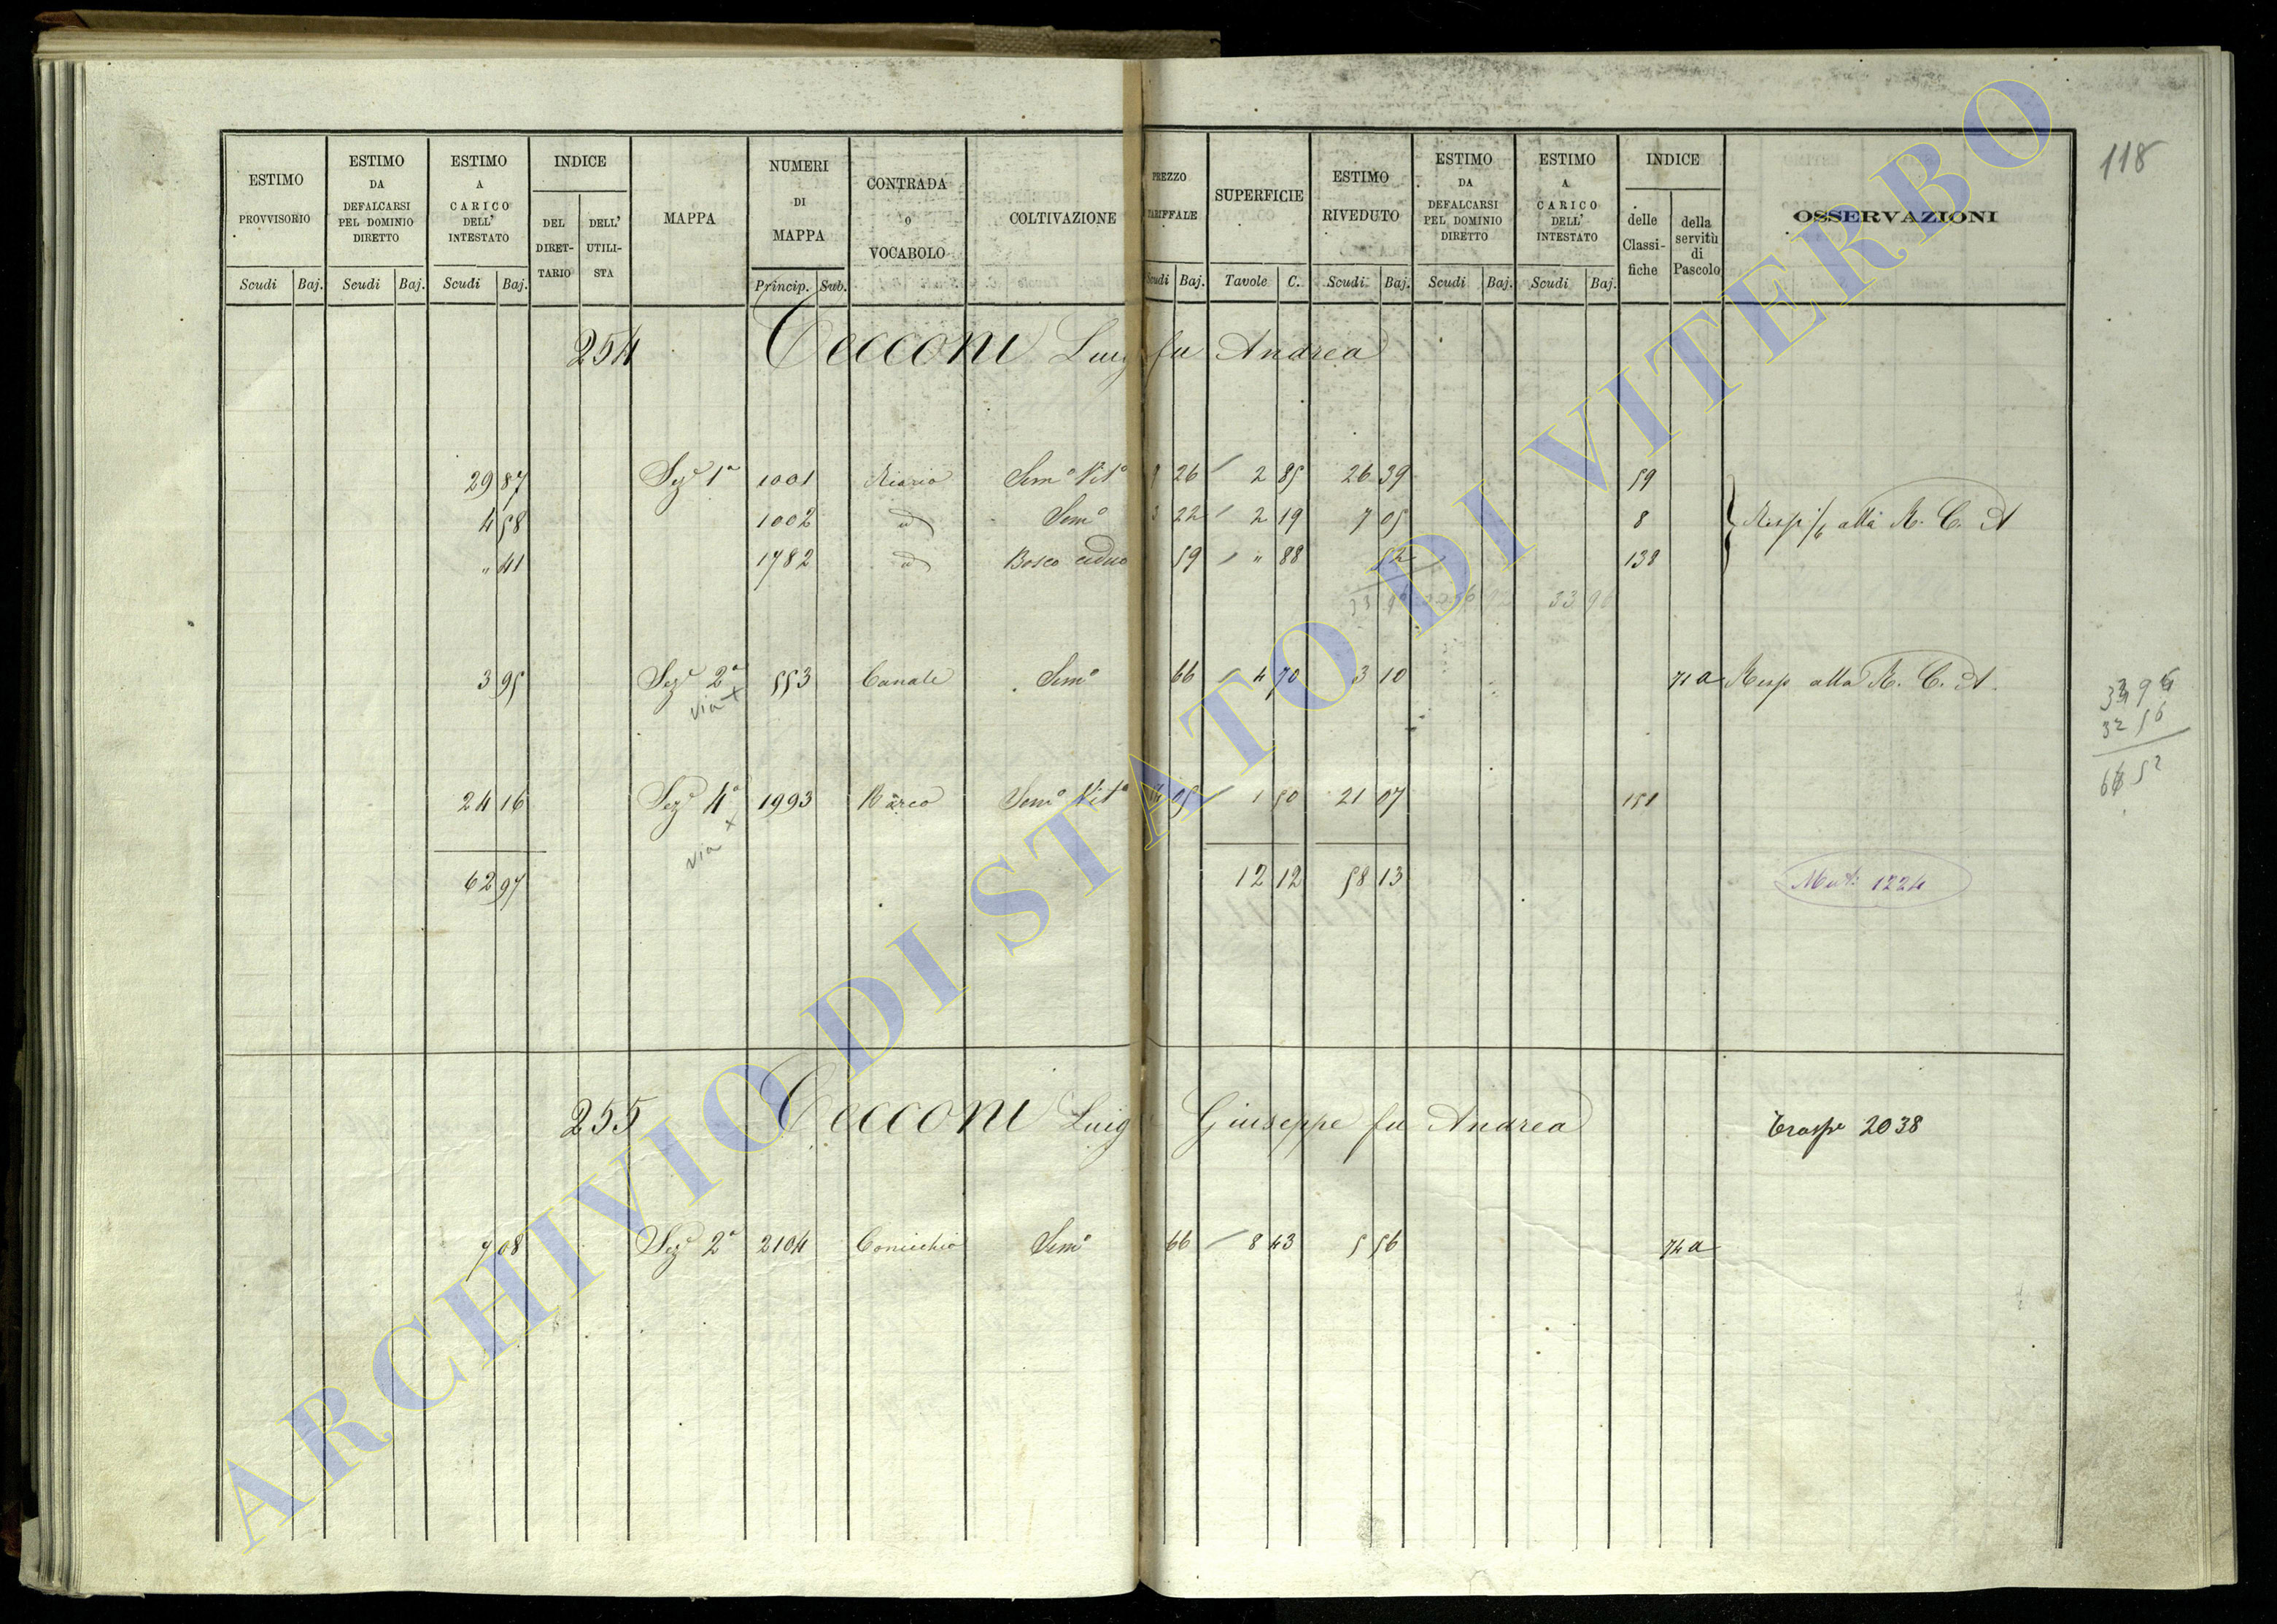 118
ESTIMO PROVVISORIO | ESTIMO DA DEFALCARSI PEL DOMINIO DIRETTO | ESTIMO A CARICO DELL' INTESTATO | INDICE | MAPPA | NUMERI DI MAPPA | CONTRADA O VOCABOLO | COLTIVAZIONE | PREZZO TARIFFALE | SUPERFICIE | ESTIMO RIVEDUTO | ESTIMO DA DEFALCARSI PEL DOMINIO DIRETTO | ESTIMO A CARICO DELL' INTESTATO | INDICE | OSSERVAZIONI
DEL DIRET-TARIO | DELL' UTILI-STA | delle Classi-fiche | della servitù di Pascolo
Scudi | Baj. | Scudi | Baj. | Scudi | Baj. | Princip. | Sub. | Scudi | Baj. | Tavole | C. | Scudi | Baj. | Scudi | Baj. | Scudi | Baj.
254 Cecconi Luig fu Andrea
29 87 Sez.e 1a 1001 Riario Sem.o Vit.o 9 26 2 85 26 39 59
4 58 1002 id Sem.o 3 22 2 19 7 05 8 Risp 1/6 alla R. C. A
" 41 1782 id Bosco ceduo 59 " 88 52 138
33 96 33 96
3 95 Sez.e 2a 553 Canale Sem.o 66 4 70 3 10 71 a Risp alla R. C. A.
via x
32 56
24 16 Sez.e 4a 1993 Barco Sem.o Vit.o 14 05 1 50 21 07 151
via x
62 97 12 12 58 13 Mut. 1224
255 Cecconi Luig Giuseppe fu Andrea Trasp.e 2038
7 08 Sez.e 2a 2104 Cornicchio Sem.o 66 8 43 5 56 74 a
ARCHIVIO DI STATO DI VITERBO